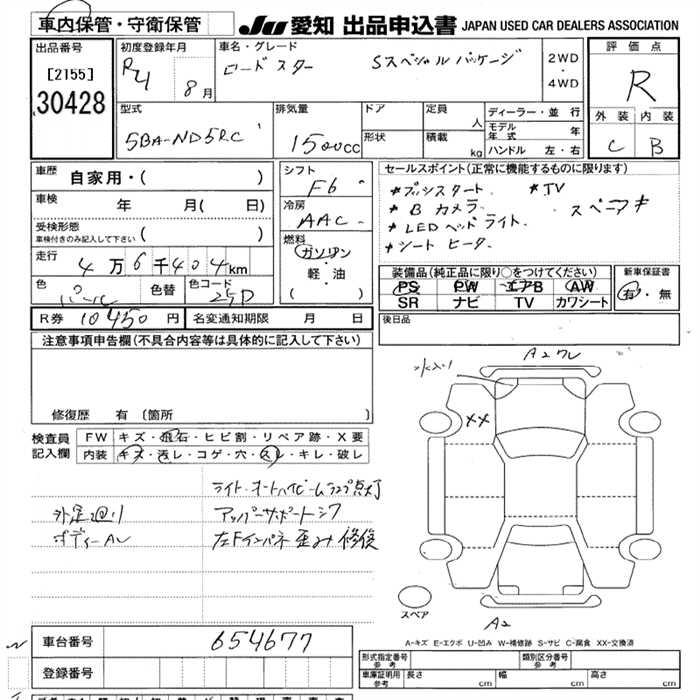 車内保管・守衛保管
JU 愛知 出品申込書 JAPAN USED CAR DEALERS ASSOCIATION
出品番号
[2155]
30428
初度登録年月
R4 8月
車名・グレード
ロードスター Sスペシャルパッケージ
2WD
・
4WD
評価点
R
外装 内装
C B
型式
5BA-ND5RC
排気量
1500cc
ドア
形状
定員 人
積載 kg
ディーラー・並行
モデル年式 年
ハンドル 左・右
車歴
自家用・( )
車検 年 月( 日)
受検形態
車検付きのみ記入して下さい ( )
走行 4万6千404km
色 パール 色替 色コード 25D
R券 10450円 名変通知期限 月 日
シフト
F6
冷房
AAC
燃料
ガソリン
・
軽・油
( )
セールスポイント(正常に機能するものに限ります)
*プッシスタート. *TV
*Bカメラ. スペアキ
*LEDヘッドライト.
*シートヒータ.
装備品(純正品に限り○をつけてください)
PS PW エアB AW
SR ナビ TV カワシート
新車保証書
有・無
後日品
注意事項申告欄(不具合内容等は具体的に記入して下さい)
修復歴 有 〔箇所 〕
検査員記入欄
FW キズ・飛石・ヒビ割・リペア跡・X要
内装 キズ・汚レ・コゲ・穴・スレ・キレ・破レ
ライト・オートハイビームランプ点灯
外足廻り アッパーサポートシワ
ボディーAU 左Fインパネ歪み修復
A2ワレ
XX
スペア
A2
A-キズ E-エクボ U-凹み W-補修跡 S-サビ C-腐食 XX-交換済
車台番号 654677
登録番号
形式指定番号 参考
類別区分番号 参考
車庫証明用 参考 長さ cm 幅 cm 高さ cm